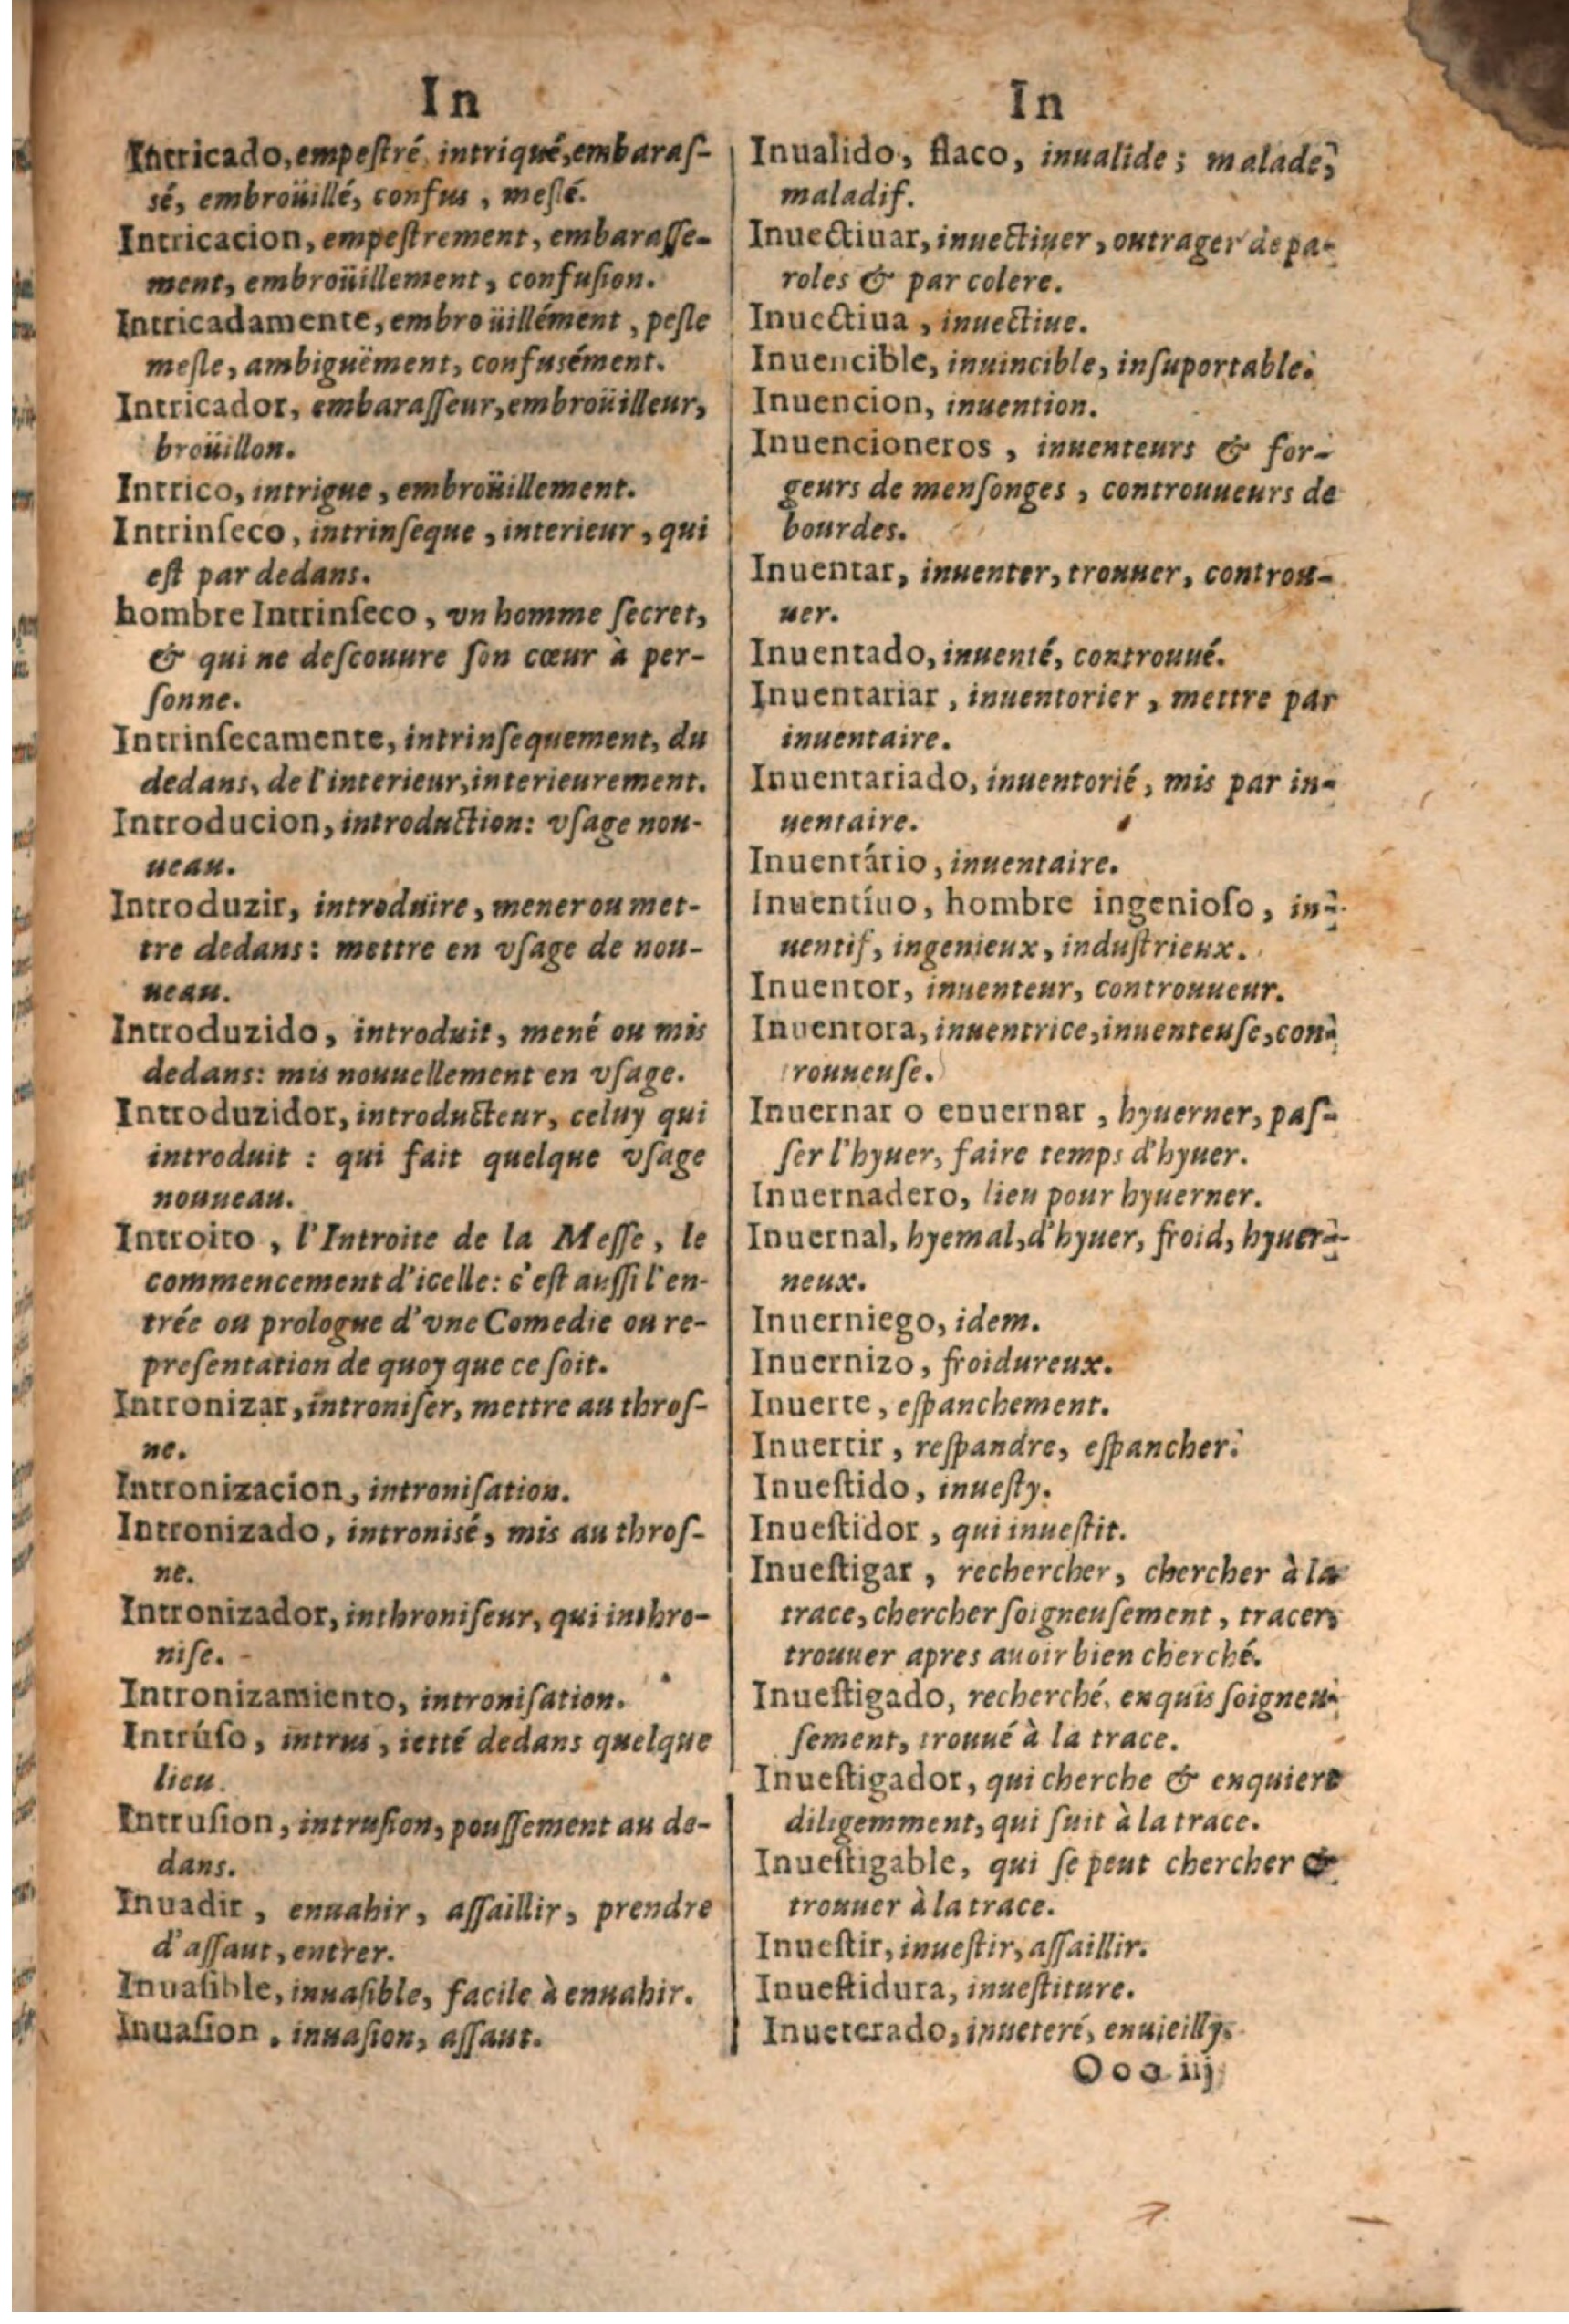 In
Intricado, empeſtré, intriqué, embaraſ-
sé, embroüillé, confus, meſlé.
Intricacion, empeſtrement, embaraſſe-
ment, embroüillement, confuſion.
Intricadamente, embroüillément, peſle
meſle, ambiguëment, confusément.
Intricador, embaraſſeur, embroüilleur,
broüillon.
Intrico, intrigue, embroüillement.
Intrinſeco, intrinſeque, interieur, qui
eſt par dedans.
hombre Intrinſeco, vn homme ſecret,
& qui ne deſcouure ſon cœur à per-
ſonne.
Intrinſecamente, intrinſequement, du
dedans, de l'interieur, interieurement.
Introducion, introduction: vſage nou-
ueau.
Introduzir, introduire, mener ou met-
tre dedans: mettre en vſage de nou-
ueau.
Introduzido, introduit, mené ou mis
dedans: mis nouuellement en vſage.
Introduzidor, introducteur, celuy qui
introduit : qui fait quelque vſage
nouueau.
Introito, l'Introite de la Meſſe, le
commencement d'icelle: c'eſt auſſi l'en-
trée ou prologue d'vne Comedie ou re-
preſentation de quoy que ce ſoit.
Intronizar, introniſer, mettre au throſ-
ne.
Intronizacion, introniſation.
Intronizado, intronisé, mis au throſ-
ne.
Intronizador, inthroniſeur, qui inthro-
niſe.
Intronizamiento, introniſation.
Intrúſo, intrus, ietté dedans quelque
lieu.
Intruſion, intruſion, pouſſement au de-
dans.
Inuadir, enuahir, aſſaillir, prendre
d'aſſaut, entrer.
Inuaſible, inuaſible, facile à enuahir.
Inuaſion, inuaſion, aſſaut.
In
Inualido, flaco, inualide; malade,
maladif.
Inuectiuar, inuectiuer, outrager de pa-
roles & par colere.
Inuectiua, inuectiue.
Inuencible, inuincible, inſuportable.
Inuencion, inuention.
Inuencioneros, inuenteurs & for-
geurs de menſonges, controuueurs de
bourdes.
Inuentar, inuenter, trouuer, controu-
uer.
Inuentado, inuenté, controuué.
Inuentariar, inuentorier, mettre par
inuentaire.
Inuentariado, inuentorié, mis par in-
uentaire.
Inuentário, inuentaire.
Inuentíuo, hombre ingenioſo, in-
uentif, ingenieux, induſtrieux.
Inuentor, inuenteur, controuueur.
Inuentora, inuentrice, inuenteuſe, con-
rouueuſe.
Inuernar o enuernar, hyuerner, paſ-
ſer l'hyuer, faire temps d'hyuer.
Inuernadero, lieu pour hyuerner.
Inuernal, hyemal, d'hyuer, froid, hyuer-
neux.
Inuerniego, idem.
Inuernizo, froidureux.
Inuerte, eſpanchement.
Inuertir, reſpandre, eſpancher.
Inueſtido, inueſty.
Inueſtidor, qui inueſtit.
Inueſtigar, rechercher, chercher à la
trace, chercher ſoigneuſement, tracer,
trouuer apres auoir bien cherché.
Inueſtigado, recherché, enquis ſoigneu-
ſement, trouué à la trace.
Inueſtigador, qui cherche & enquiert
diligemment, qui ſuit à la trace.
Inueſtigable, qui ſe peut chercher &
trouuer à la trace.
Inueſtir, inueſtir, aſſaillir.
Inueſtidura, inueſtiture.
Inueterado, inueteré, enuieilly.
Ooo iij